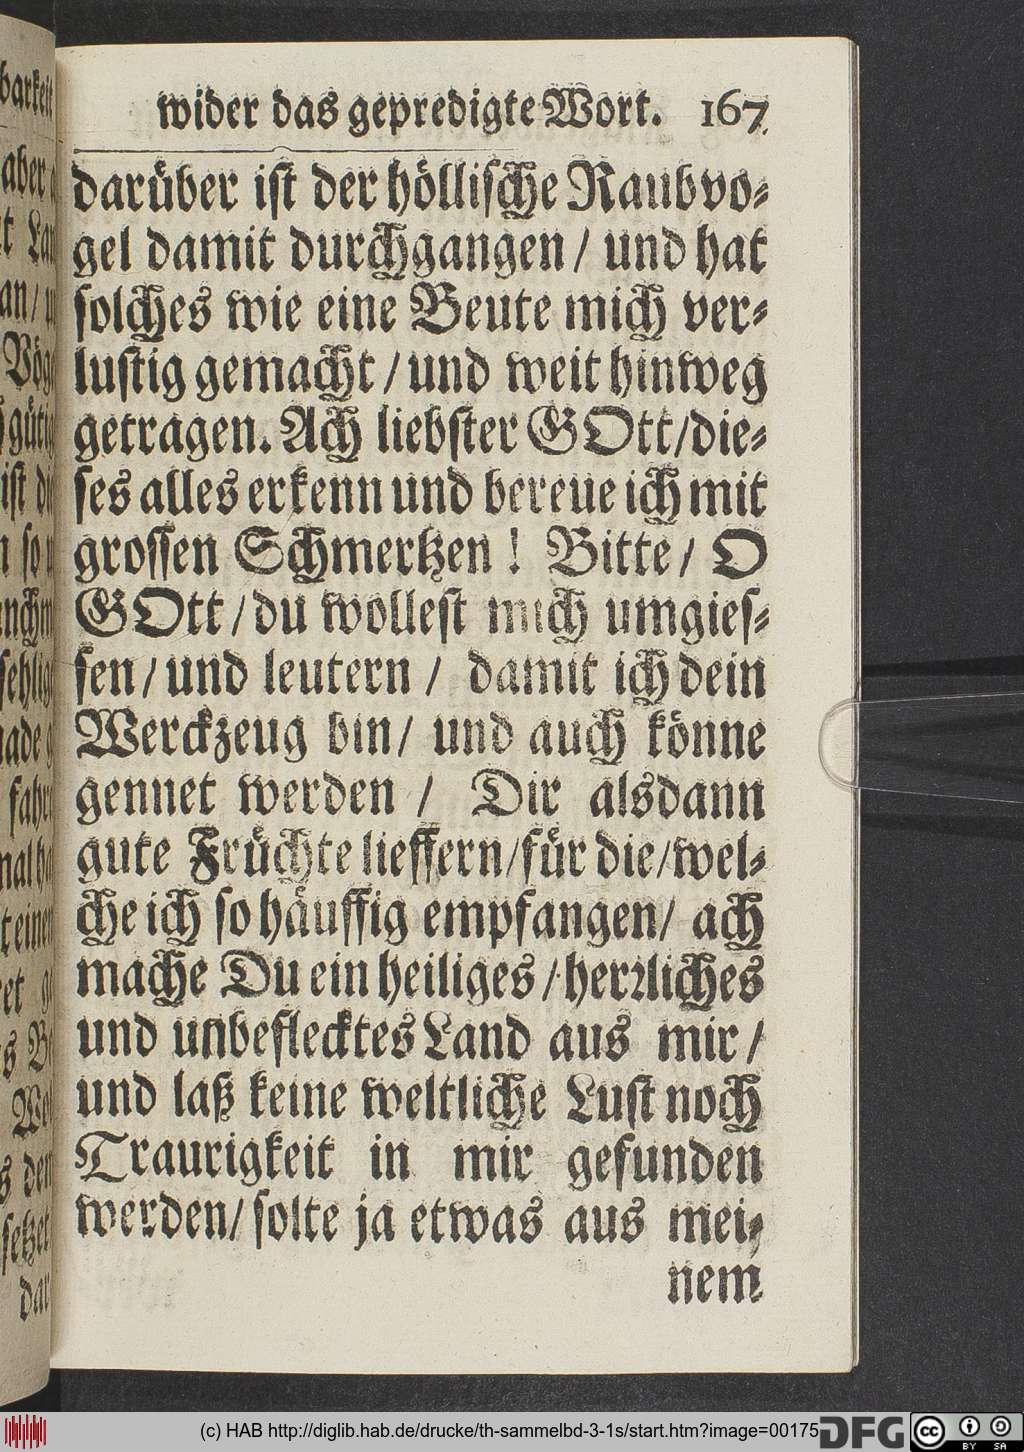 wider das gepredigte Wort. 167
darüber ist der höllische Raubvo-
gel damit durchgangen / und hat
solches wie eine Beute mich ver-
lustig gemacht / und weit hinweg
getragen. Ach liebster GOtt/die-
ses alles erkenn und bereue ich mit
grossen Schmertzen ! Bitte / O
GOtt / du wollest mich umgies-
sen / und leutern / damit ich dein
Werckzeug bin / und auch könne
gennet werden / Dir alsdann
gute Früchte lieffern/für die/wel-
che ich so häuffig empfangen/ ach
mache Du ein heiliges / herrliches
und unbeflecktes Land aus mir /
und laß keine weltliche Lust noch
Traurigkeit in mir gefunden
werden/ solte ja etwas aus mei-
nem
(c) HAB http://diglib.hab.de/drucke/th-sammelbd-3-1s/start.htm?image=00175
DFG
cc BY SA